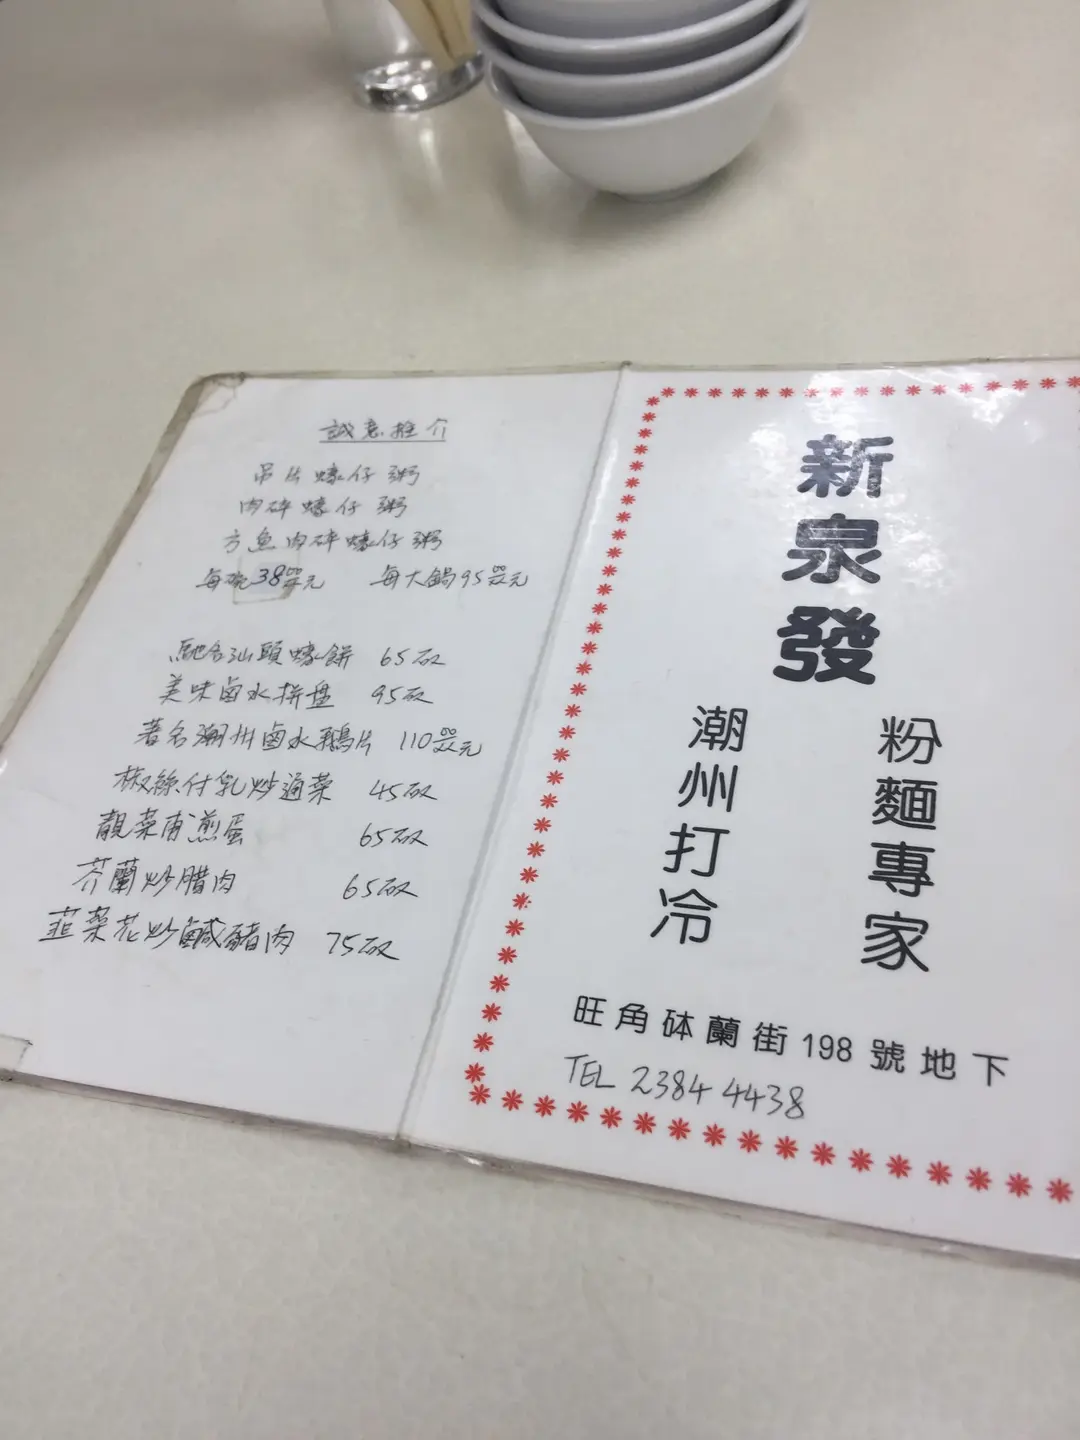 誠意推介
吊片蠔仔粥
肉碎蠔仔粥
方魚肉碎蠔仔粥
每碗38元 每大鍋95元
馳名汕頭蠔餅 65
美味卤水拼盘 95
著名潮州卤水鵝片 110元
椒絲付乳炒通菜 45
靚菜甫煎蛋 65
芥蘭炒腊肉 65
韮菜花炒鹹豬肉 75
新泉發
粉麵專家
潮州打冷
旺角砵蘭街198號地下
TEL 2384 4438